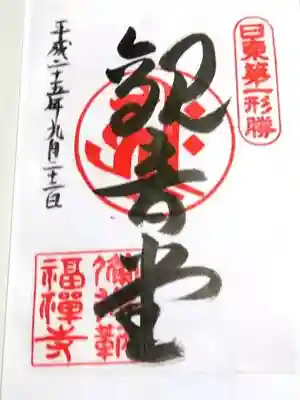 日東第一形勝
観音堂
平成二十五年九月二十二日
福禪寺